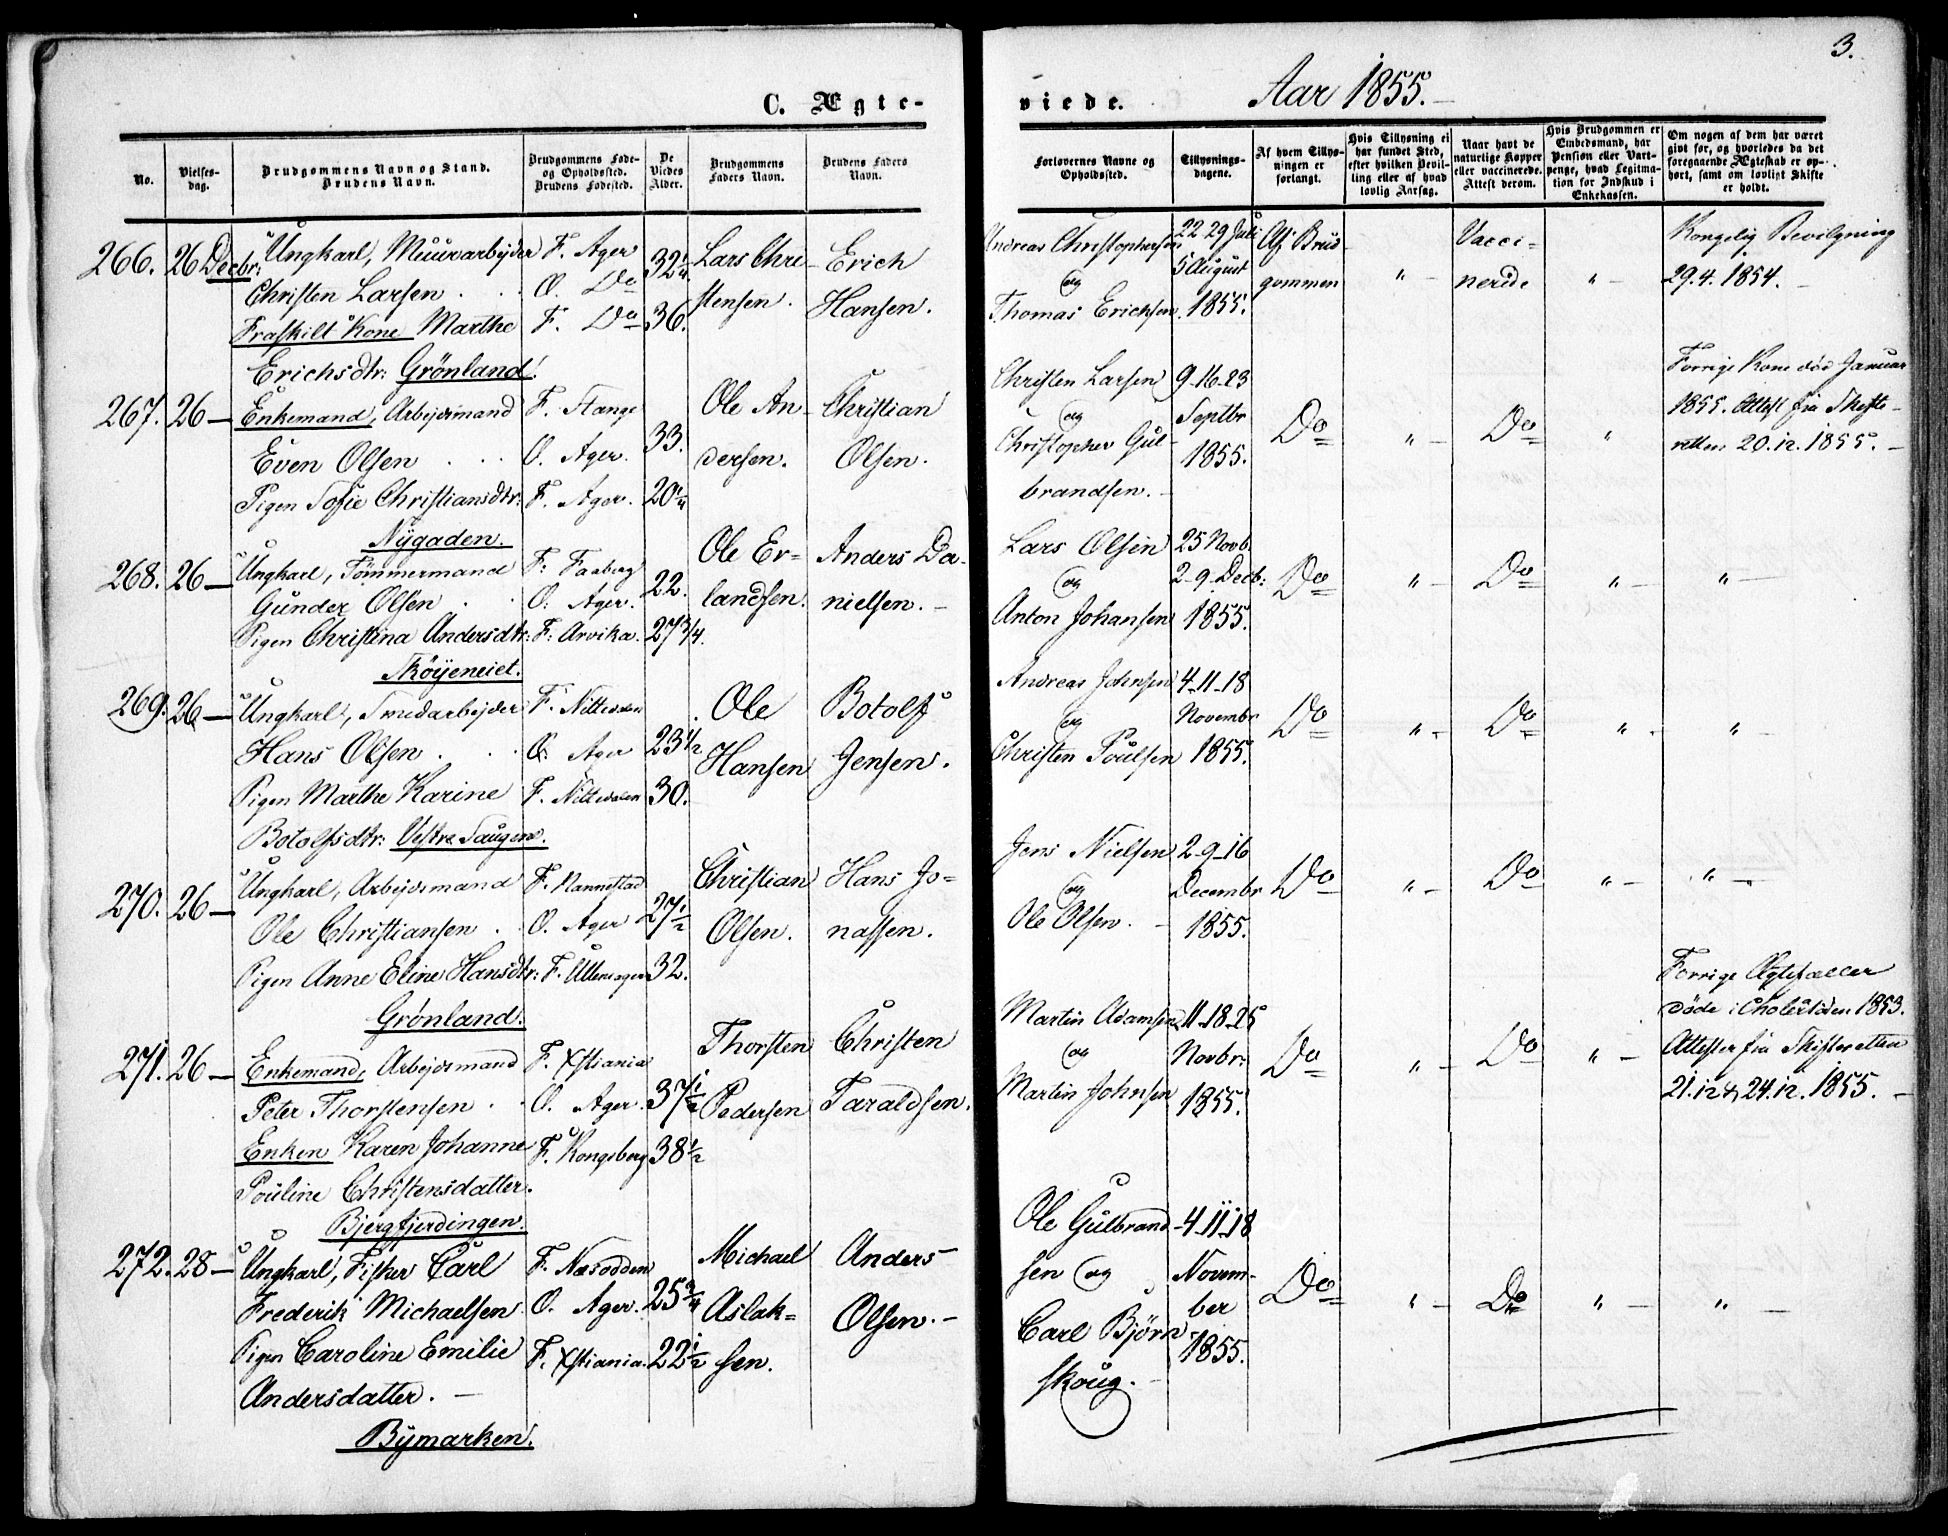 3.
C. Ægte-
viede.
Aar 1855.
No.
Vielses-
dag.
Brudgommens Navn og Stand.
Brudens Navn.
Brudgommens Føde-
og Opholdssted.
Brudens Fødested.
De
Viedes
Alder.
Brudgommens
Faders Navn.
Brudens Faders
Navn.
Forlovernes Navne og
Opholdssted.
Tillysnings-
dagene.
Af hvem Tillys-
ningen er
forlangt.
Hvis Tillysning ei
har fundet Sted,
efter hvilken Bevil-
ling eller af hvad
lovlig Aarsag.
Naar havt de
naturlige Kopper
eller vaccinerede.
Attest derom.
Hvis Brudgommen er
Embedsmand, har
Pension eller Vart-
penge, hvad Legitima-
tion for Indskud i
Enkekassen.
Om nogen af dem har været
gift før, og hvorledes da det
foregaaende Ægteskab er op-
hørt, samt om lovligt Skifte
er holdt.
266. 26 Decbr:
Ungkarl, Muurarbejder
Christen Larsen
Fraskilt Kone Marthe
Erichsdtr: Grönland!
F. Ager
O. Do
F. Do
32 1/4
36.
Lars Chri-
stensen.
Erich
Hansen.
Andreas Christophersen
og
Thomas Erichsen.
22-29 Juli
5 August
1855.
Af Brud-
gommen
" -
Vacci-
nerede
" -
Kongelig Bevilgning
29.4.1854.
267. 26 —
Enkemand, Arbejdsmand
Even Olsen
Pigen Sofie Christiansdtr:
Nÿgaden.
F. Stange
O. Ager.
F. Ager.
33.
20 1/4
Ole An-
dersen.
Christian
Olsen.
Christen Larsen
og
Christopher Gul-
brandsen.
9-16-23
Septbr
1855.
Do
" -
Do
"
Forrige Kone død Januar
1855. Attest fra Skifte-
retten 20.12.1855.
268. 26 —
Ungkarl, Tømmermand
Gunder Olsen
Pigen Christina Andersdtr:
Skøÿeneiet.
F: Faaberg
O: Ager.
F: Arvika.
22.
27 3/4.
Ole Er-
landsen.
Anders Da-
nielsen.
Lars Olsen
og
Anton Johansen
25 Novb.
2-9-Decb:
1855.
Do
" -
Do
" -
" -
269. 26 —
Ungkarl, Smedarbejder
Hans Olsen
Pigen Marthe Karine
Botolfsdtr: Vestre Saugene.
F. Nittedalen
O: Ager
F. Nittedalen
23 1/2
30.
Ole
Hansen
Botolf
Jensen.
Andreas Johnsen
og
Christen Poulsen
4-11-18
Novembr
1855.
Do
" -
Do
" -
" -
270. 26 —
Ungkarl, Arbejdsmand
Ole Christiansen
Pigen Anne Eline Hansdtr:
Grønland.
F. Nannestad
O. Ager
F. Ullensager
27 1/2
32.
Christian
Olsen.
Hans Jo-
nassen.
Jens Nielsen
og
Ole Olsen.
2-9-16
Decembr
1855.
Do
" -
Do
" -
" -
271. 26 —
Enkemand, Arbejdsmand
Peter Thorstensen
Enken Karen Johanne
Pouline Christensdatter.
Bjergfjerdingen.
F. Xstiania
O. Ager.
F. Kongsberg
37 1/2
38 1/2
Thorsten
Pedersen
Christen
Taraldsen.
Martin Adamsen
og
Martin Johnsen
11-18-25
Novbr:
1855.
Do
" -
Do
" -
Forrige Ægtefæller
døde i Choleratiden 1853.
Attester fra Skifteretten
21.12 & 24.12.1855.
272. 28 —
Ungkarl, Fisker Carl
Frederik Michaelsen
Pigen Caroline Emilie
Andersdatter.
Bÿmarken.
F. Næsodden
O. Ager.
F. Xstiania.
25 3/4
22 1/2
Michael
Aslak-
sen.
Anders
Olsen.
Ole Gulbrand-
sen og
Carl Bjørn-
skoug.
4-11-18
Novem-
ber
1855.
Do
" -
Do
" -
" -